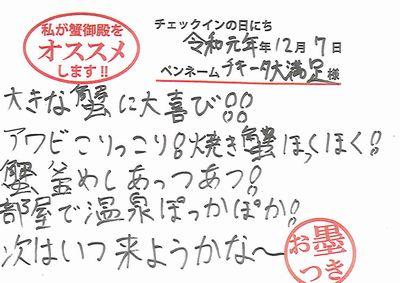 私が蟹御殿を
オススメ
します!!
チェックインの日にち
令和元年 年12月7日
ペンネーム チキータ大満足 様
大きな蟹に大喜び!!
アワビこりっこり!焼き蟹ほっくほく!
蟹釜めしあっつあつ!
部屋で温泉ぽっかぽか!
次はいつ来ようかな〜
お墨
つき